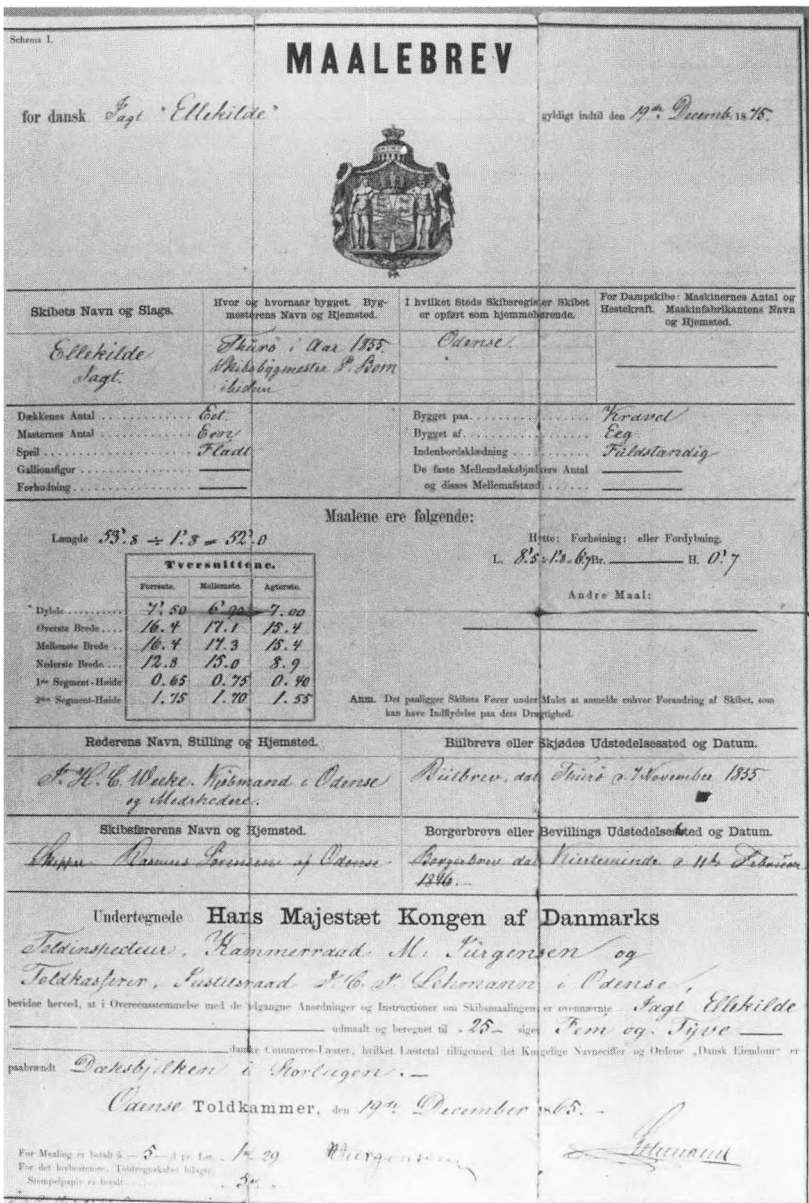 Schema I.
MAALEBREV
for dansk Jagt "Ellekilde" gyldigt indtil den 19de Decemb. 1875.
Skibets Navn og Slags.
Hvor og hvornaar bygget. Byg-
mesterens Navn og Hjemsted.
I hvilket Steds Skibsregister Skibet
er opført som hjemmehørende.
For Dampskibe: Maskinernes Antal og
Hestekraft. Maskinfabrikantens Navn
og Hjemsted.
Ellekilde
Jagt.
Thurö i Aar 1855.
Skibsbygmester P. Bom
Odense
Dækkenes Antal Eet.
Masternes Antal Een
Speil Fladt
Gallionsfigur
Forhudning
Bygget paa Kravel
Bygget af Eeg
Indenbordsklædning Fuldstændig
De faste Mellemdæksbjælkers Antal
og disses Mellemafstand
Maalene ere følgende:
Længde 53'.8 ÷ 1'.8 = 52'.0
Hytte; Forhøining; eller Fordybning.
L. 8'.5 ÷ 1'.8 = 6'.7 Br. H. 0'.7
Andre Maal:
Tversnittene.
Forreste. Mellemste. Agterste.
Dybde 7'.50 6'.90 7.00
Øverste Brede 16.4 17.1 15.4
Mellemste Brede 16.4 17.3 15.4
Nederste Brede 12.8 15.0 8.9
1ste Segment-Høide 0.65 0.75 0.40
2den Segment-Høide 1.75 1.70 1.55
Anm. Det paaligger Skibets Fører under Mulct at anmelde enhver Forandring af Skibet, som
kan have Indflydelse paa dets Drægtighed.
Rederens Navn, Stilling og Hjemsted.
Biilbrevs eller Skjødes Udstedelsessted og Datum.
H. C. Weeke. Kjøbmand i Odense
og Medrhedere.
Biilbrev, dat Thurö d. 7 November 1855.
Skibsførerens Navn og Hjemsted.
Borgerbrevs eller Bevillings Udstedelsessted og Datum.
Skipper Rasmus Sørensen af Odense
Borgerbrev dat Kierteminde d 11te Februar
1846.
Undertegnede Hans Majestæt Kongen af Danmarks
Toldinspecteur, Kammerraad M. Jürgensen og
Toldkasserer, Justitsraad J. C. F. Lehmann i Odense,
bevidne herved, at i Overeensstemmelse med de udgangne Anordninger og Instructioner om Skibsmaalingen, er ovennævnte Jagt Ellekilde
udmaalt og beregnet til 25 siger Fem og Tyve
danske Commerce-Læster, hvilket Læstetal tilligemed det Kongelige Navneciffer og Ordene „Dansk Eiendom“ er
paabrændt Dæksbjelken i Storlugen.
Odense Toldkammer, den 19de December 1865.
For Maaling er betalt à 5 β pr. Læst 1 29
For det lovbestemte, Toldregnskabet bilagte,
Stempelpapir er betalt
Jürgensen
Lehmann